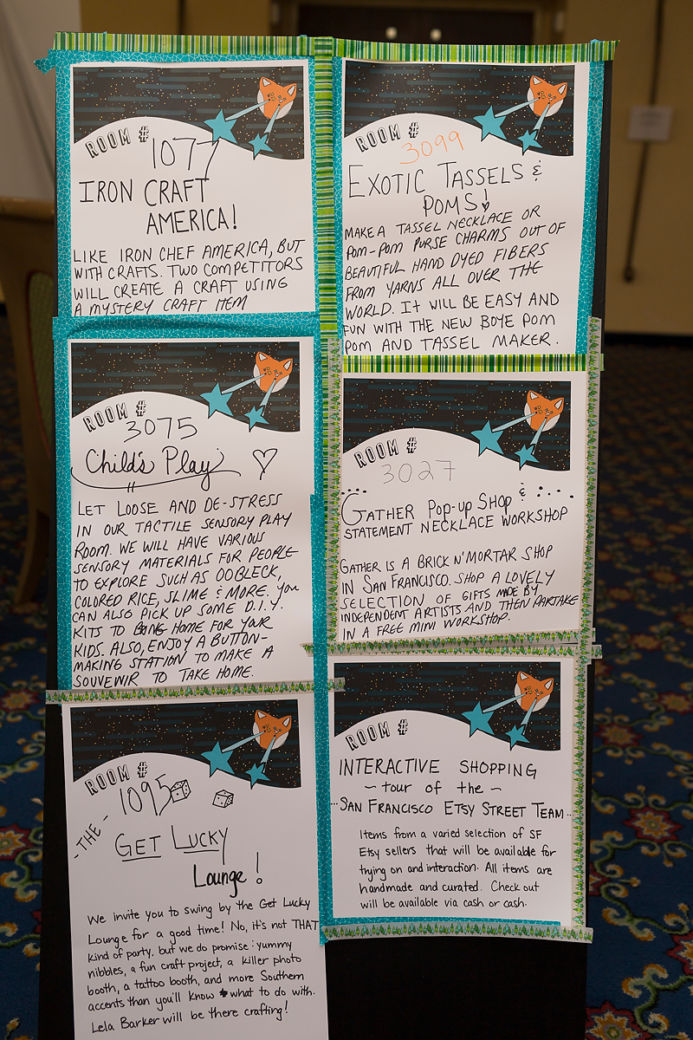 ROOM #
1077
IRON CRAFT
AMERICA!
LIKE IRON CHEF AMERICA, BUT
WITH CRAFTS. TWO COMPETITORS
WILL CREATE A CRAFT USING
A MYSTERY CRAFT ITEM
ROOM #
3075
Child's Play
LET LOOSE AND DE-STRESS
IN OUR TACTILE SENSORY PLAY
ROOM. WE WILL HAVE VARIOUS
SENSORY MATERIALS FOR PEOPLE
TO EXPLORE SUCH AS OOBLECK,
COLORED RICE, SLIME & MORE. YOU
CAN ALSO PICK UP SOME D.I.Y.
KITS TO BRING HOME FOR YOUR
KIDS. ALSO, ENJOY A BUTTON-
MAKING STATION TO MAKE A
SOUVENIR TO TAKE HOME.
ROOM #
1095
- THE -
GET LUCKY
Lounge!
We invite you to swing by the Get Lucky
Lounge for a good time! No, it's not THAT
kind of party, but we do promise: yummy
nibbles, a fun craft project, a killer photo
booth, a tattoo booth, and more Southern
accents than you'll know what to do with.
Lela Barker will be there crafting!
ROOM #
3099
EXOTIC TASSELS &
POMS!
MAKE A TASSEL NECKLACE OR
POM-POM PURSE CHARMS OUT OF
BEAUTIFUL HAND DYED FIBERS
FROM YARNS ALL OVER THE
WORLD. It WILL BE EASY AND
FUN WITH THE NEW BOYE POM
POM AND TASSEL MAKER.
ROOM #
3027
GATHER Pop-up Shop &
STATEMENT NECKLACE WORKSHOP
GATHER IS A BRICK N' MORTAR SHOP
IN SAN FRANCISCO. SHOP A LOVELY
SELECTION OF GIFTS MADE BY
INDEPENDENT ARTISTS AND THEN PARTAKE
IN A FREE MINI WORKSHOP.
ROOM #
INTERACTIVE SHOPPING
~ tour of the ~
SAN FRANCISCO ETSY STREET TEAM
Items from a varied selection of SF
Etsy sellers that will be available for
trying on and interaction. All items are
handmade and curated. Check out
will be available via cash or cash.